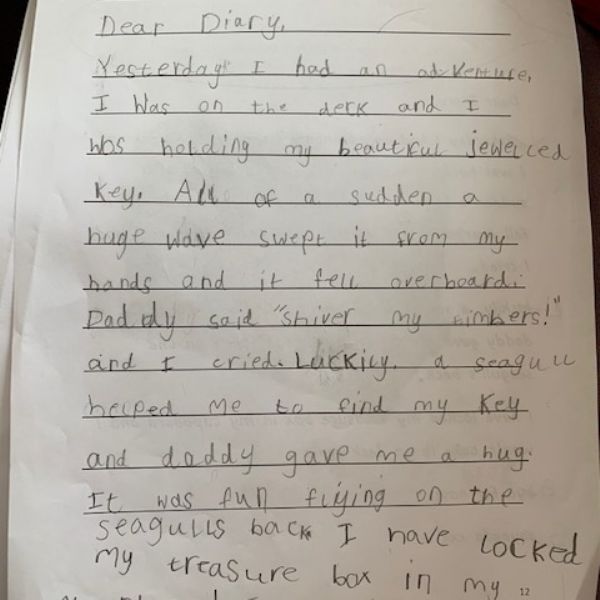 Dear Diary,
Yesterday I had an adventure,
I was on the deck and I
was holding my beautiful jewelled
Key. All of a sudden a
huge wave swept it from my
hands and it fell overboard.
Daddy said "shiver my timbers!"
and I cried. Luckily, a seagull
helped me to find my key
and daddy gave me a hug.
It was fun flying on the
seagulls back I have locked
my treasure box in my
12